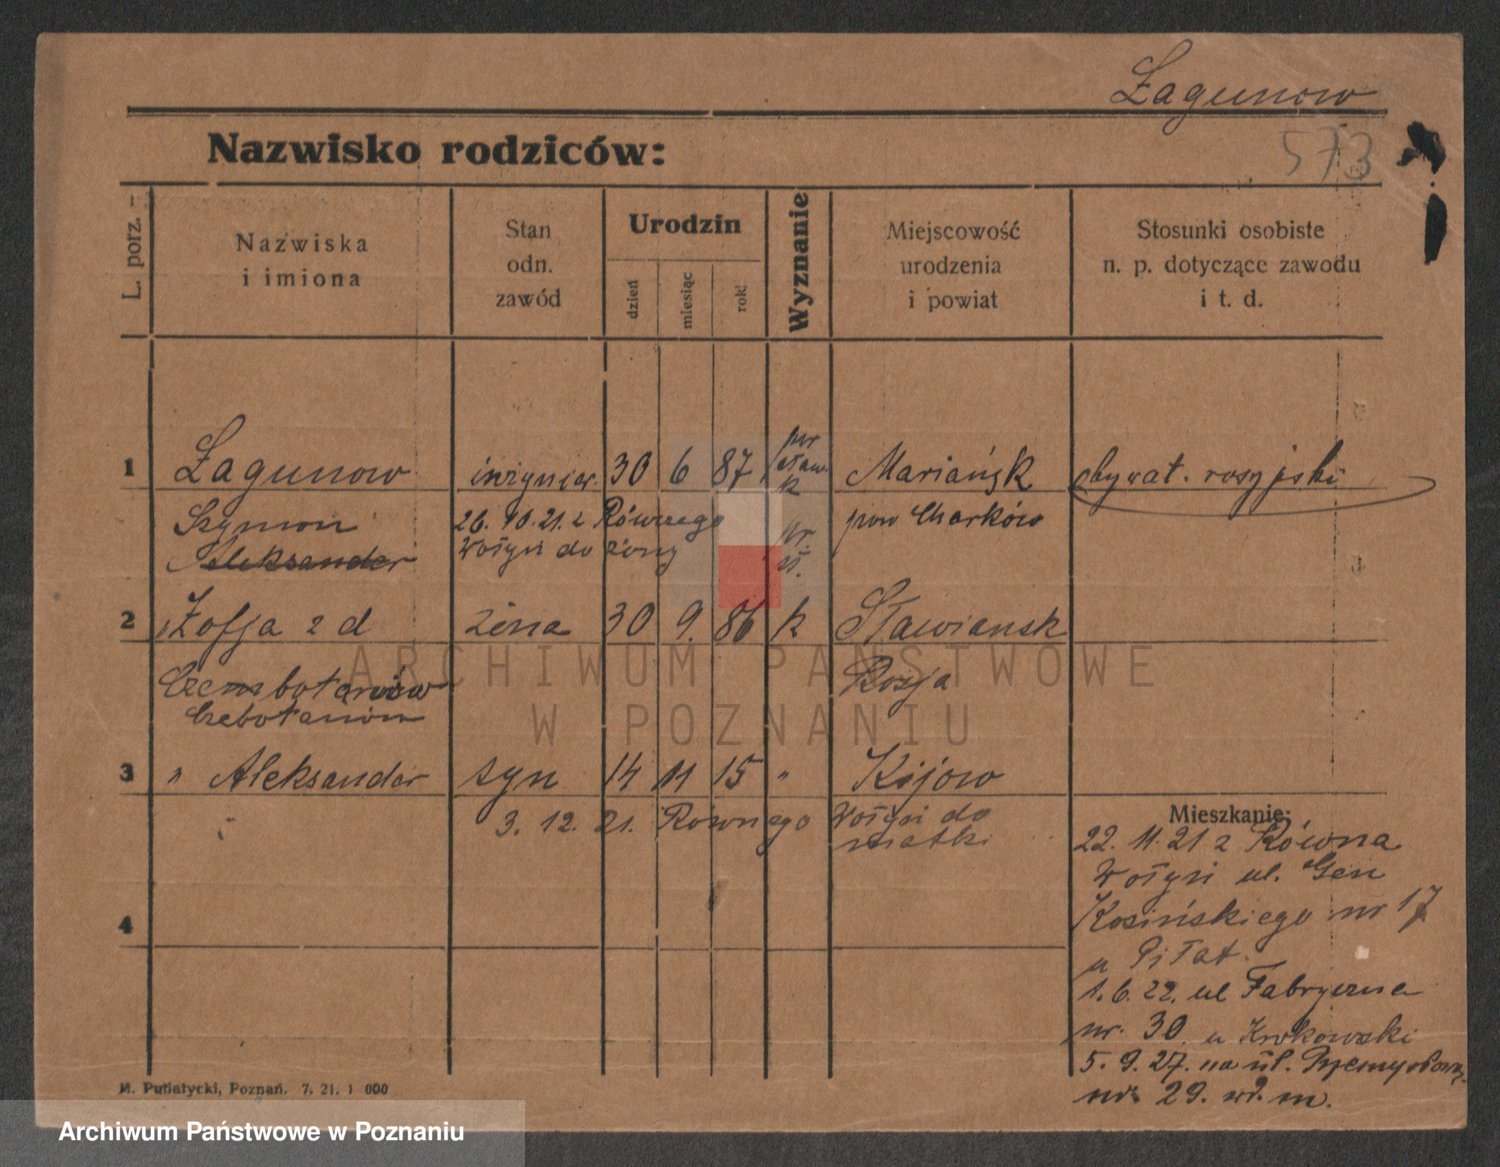 Łagunow
573
Nazwisko rodziców:
L. porz.
Nazwiska
i imiona
Stan
odn.
zawód
Urodzin
dzień
miesiąc
rok
Wyznanie
Miejscowość
urodzenia
i powiat
Stosunki osobiste
n. p. dotyczące zawodu
i t. d.
1 Łagunow inżynier 30 6 87 Mariańsk obywat. rosyjski
Szymon 26. 10. 21. z Równego pow Charków
Aleksander Wołyń do żony
2 Zofja z d żona 30 9. 86 k Sławiansk
Czembotarów Rosja
Czebotarów
3 " Aleksander syn 14 11 15 " Kijow
3. 12. 21. Równego Wołyń do
matki
4
Mieszkanie:
22. 11. 21 z Równa
Wołyń ul. Gen
Kosińskiego nr 17
u Piłat.
1. 6. 22. ul Fabryczna
nr. 30 u Krokowski
5. 9. 27. na ul. Przemysłową
nr. 29. wł. m.
M. Putiatycki, Poznań. 7. 21. 1 000
ARCHIWUM PAŃSTWOWE
W POZNANIU
Archiwum Państwowe w Poznaniu